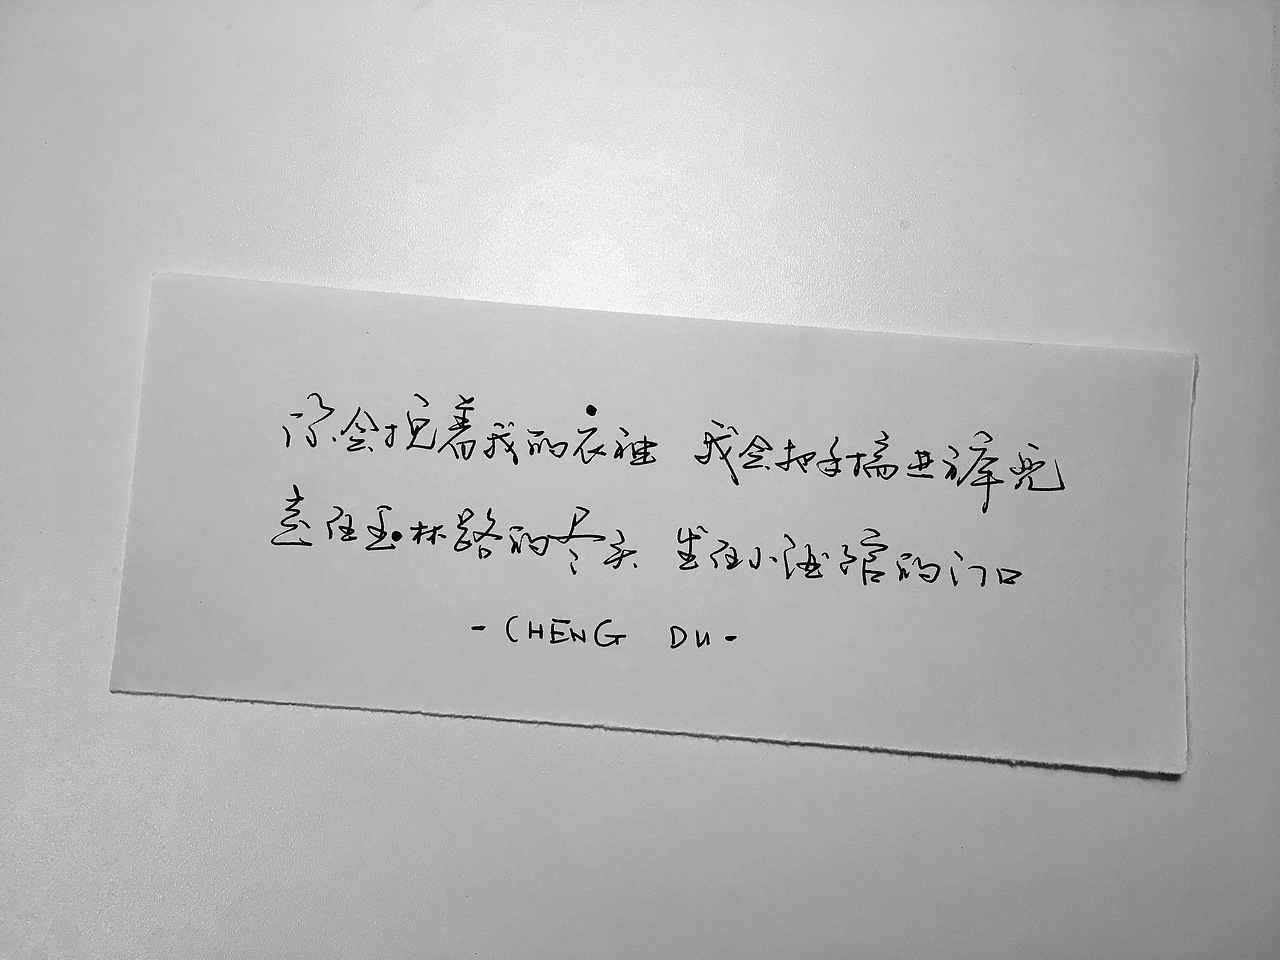 你会挽着我的衣袖 我会把手揣进裤兜
走在玉林路的尽头 坐在小酒馆的门口
- CHENG DU -